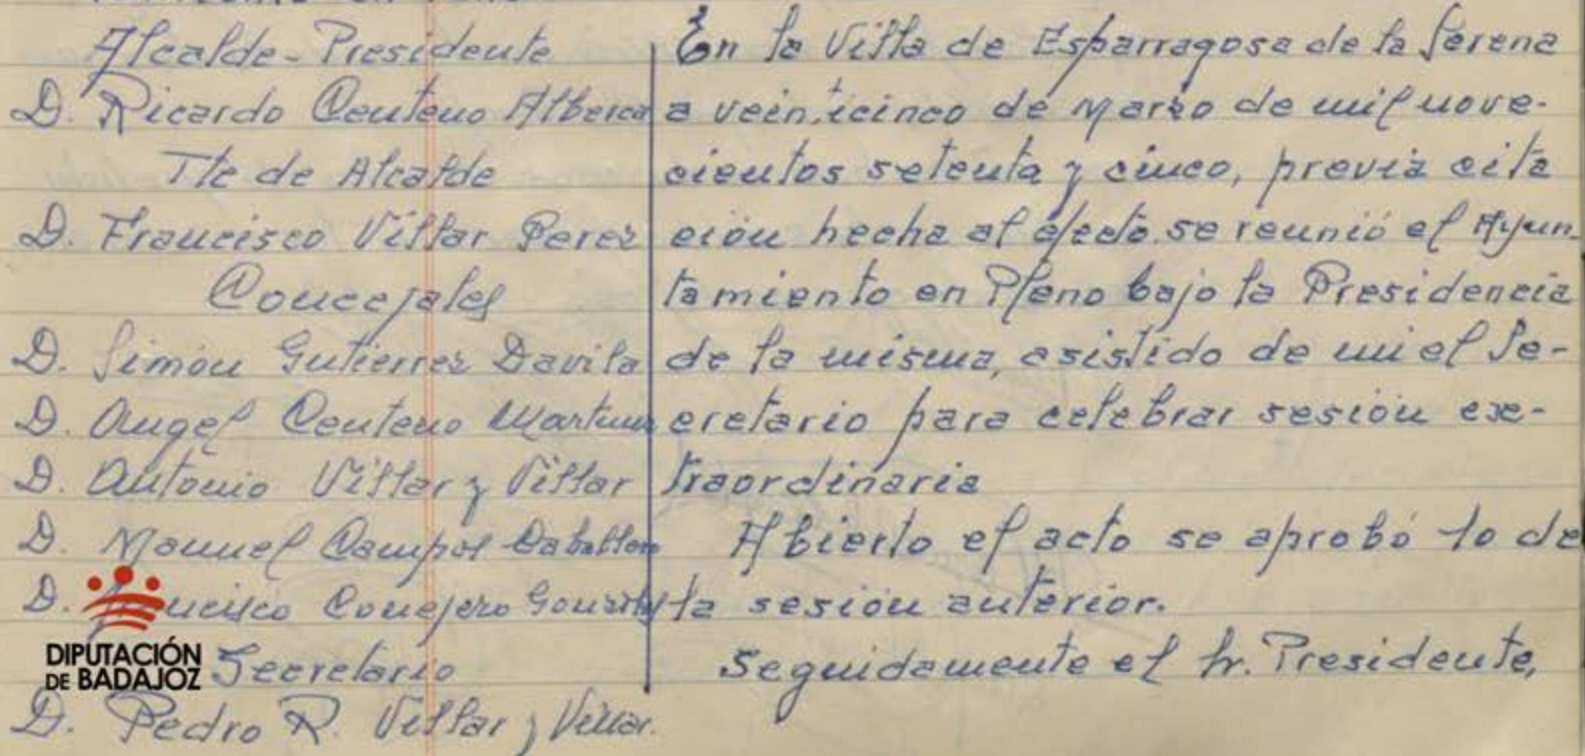 Alcalde-Presidente
D. Ricardo Centeno Alberca
Tte de Alcalde
D. Francisco Villar Perez
Concejales
D. Simón Gutierrez Davila
D. Angel Centeno Martinez
D. Antonio Villar y Villar
D. Manuel Campos Caballero
D. Francisco Conejero Gonzalez
Secretario
D. Pedro R. Villar y Villar.
En la Villa de Esparragosa de la Serena
a veinticinco de Marzo de mil nove-
cientos setenta y cinco, previa cita
ción hecha al efecto se reunió el Ayun-
tamiento en Pleno bajo la Presidencia
de la misma, asistido de mi el Se-
cretario para celebrar sesión ex-
traordinaria
Abierto el acto se aprobó lo de
la sesión anterior.
Seguidamente el Sr. Presidente,
DIPUTACIÓN
DE BADAJOZ